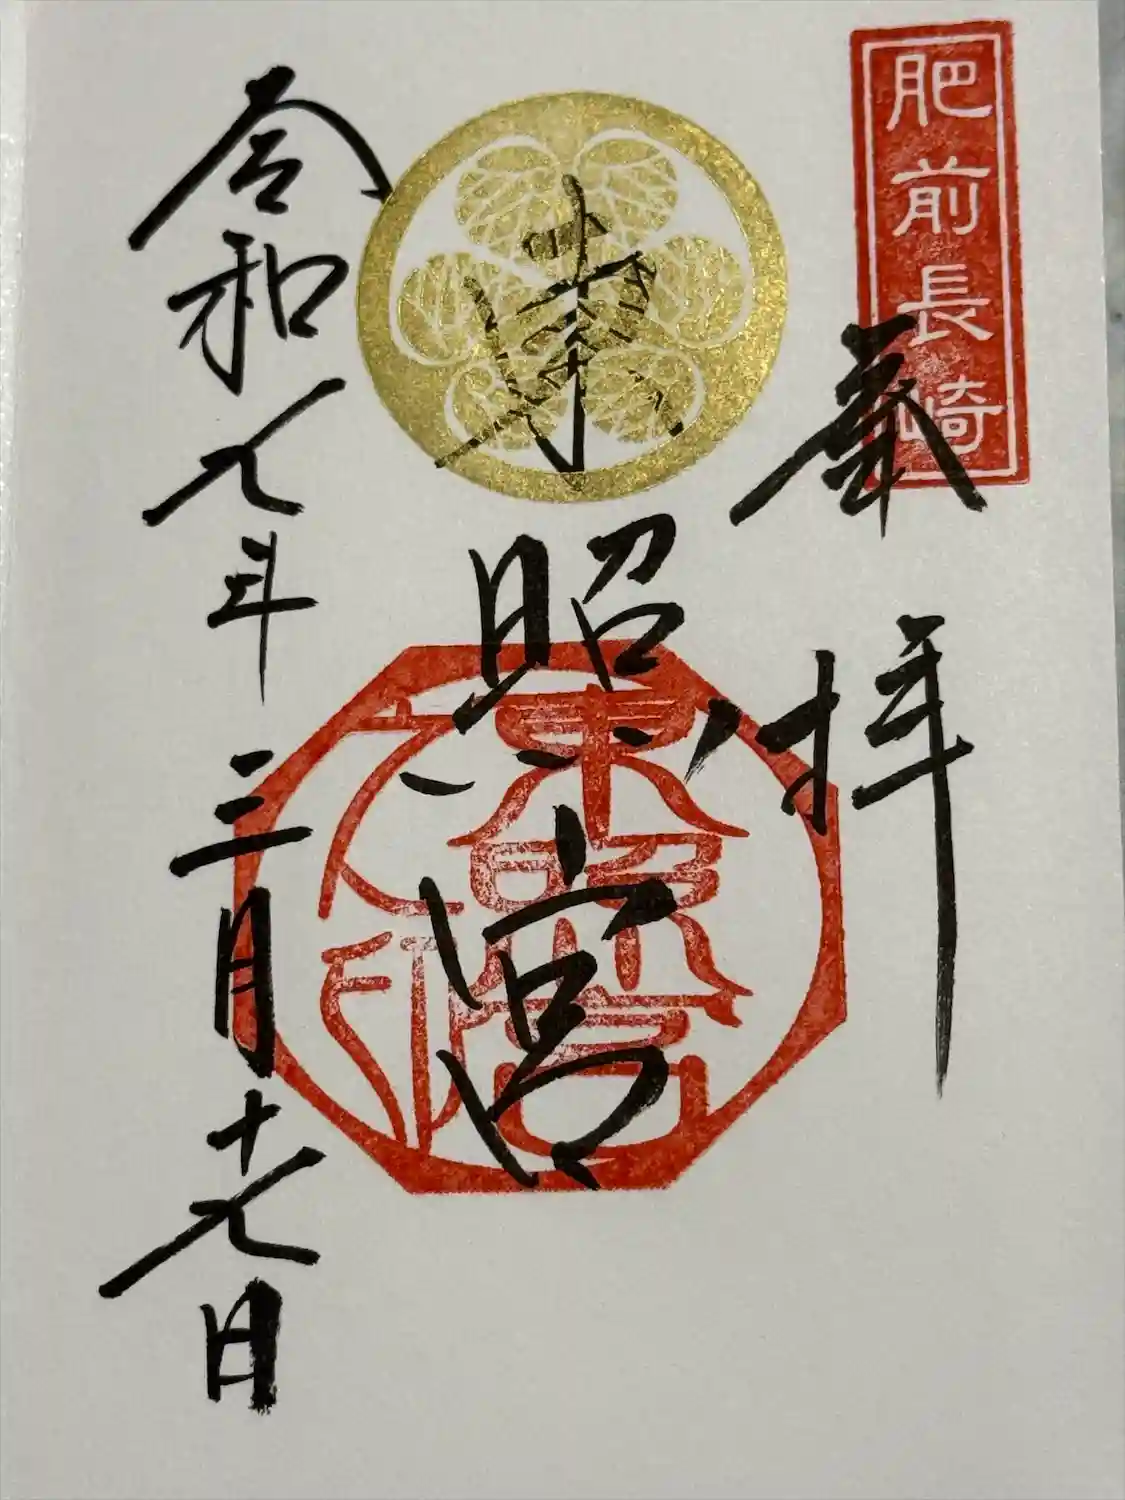 肥前長崎
奉拝
東照宮
東照宮
之印
令和七年三月十七日